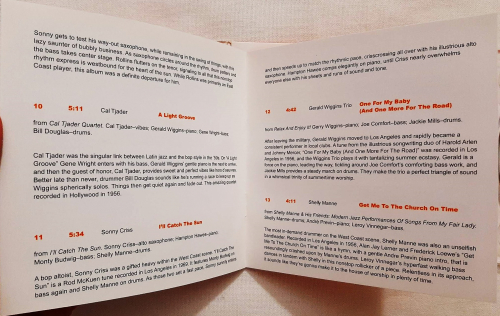 Sonny gets to test his way-out saxophone, while remaining in the swing of things, with this
lazy saunter of bubbly business. As saxophone circles around the rhythm, drum patters and
the bass takes center stage. Rollins flutters on the tenor, signaling to all that this nonstop
rhythm express is westbound for the heart of the sun. While Rollins was primarily an East
Coast player, this album was a definite departure for him.
10 5:11 Cal Tjader A Light Groove
from Cal Tjader Quartet. Cal Tjader–vibes; Gerald Wiggins–piano; Gene Wright–bass;
Bill Douglas–drums.
Cal Tjader was the singular link between Latin jazz and the bop style in the '50s. On "A Light
Groove" Gene Wright enters with his bass. Gerald Wiggins' gentle piano is the next to arrive,
and then the guest of honor, Cal Tjader, provides sweet and perfect vibes like hors d'oeuvres.
Better late than never, drummer Bill Douglas sounds like he's running a late breakfast as
Wiggins spherically solos. Things then get quiet again and fade out. This amazing quartet
recorded in Hollywood in 1956.
11 5:34 Sonny Criss I'll Catch The Sun
from I'll Catch The Sun. Sonny Criss–alto saxophone; Hampton Hawes–piano;
Monty Budwig–bass; Shelly Manne–drums.
A bop altoist, Sonny Criss was a gifted heavy within the West Coast scene. "I'll Catch The
Sun" is a Rod McKuen tune recorded in Los Angeles in 1969. It features Monty Budwig on
bass again and Shelly Manne on drums. As those two set a fast pace, Sonny surely enters
and then speeds up to match the rhythmic pace, crisscrossing all over with his illustrious alto
saxophone. Hampton Hawes comps elegantly on piano, until Criss nearly overwhelms
everyone else with his sheets and runs of sound and tone.
12 4:42 Gerald Wiggins Trio One For My Baby
(And One More For The Road)
from Relax And Enjoy It! Gerry Wiggins–piano; Joe Comfort–bass; Jackie Mills–drums.
After leaving the military, Gerald Wiggins moved to Los Angeles and rapidly became a
consistent performer in local clubs. A tune from the illustrious songwriting duo of Harold Arlen
and Johnny Mercer, "One For My Baby (And One More For The Road)" was recorded in Los
Angeles in 1956, and the Wiggins Trio plays it with tantalizing summer ecstasy. Gerald is a
force on the piano, leading the way, looking around Joe Comfort's comforting bass work, and
Jackie Mills provides a steady march on drums. They make the trio a perfect triangle of sound
in a whimsical trinity of summertime worship.
13 4:11 Shelly Manne Get Me To The Church On Time
from Shelly Manne & His Friends: Modern Jazz Performances Of Songs From My Fair Lady.
Shelly Manne–drums; André Previn–piano; Leroy Vinnegar–bass.
The most in-demand drummer on the West Coast scene, Shelly Manne was also an unselfish
bandleader. Recorded in Los Angeles in 1956, Alan Jay Lerner and Frederick Loewe's "Get
Me To The Church On Time" is like a hymn, with a gentle Andre Previn piano intro, that is
reasonably crashed soon by Manne's drums. Leroy Vinnegar's hyperfast walking bass
dances in tandem with Shelly in this nonstop rollicker of a piece. Relentless in its approach,
it sounds like they're gonna make it to the house of worship in plenty of time.